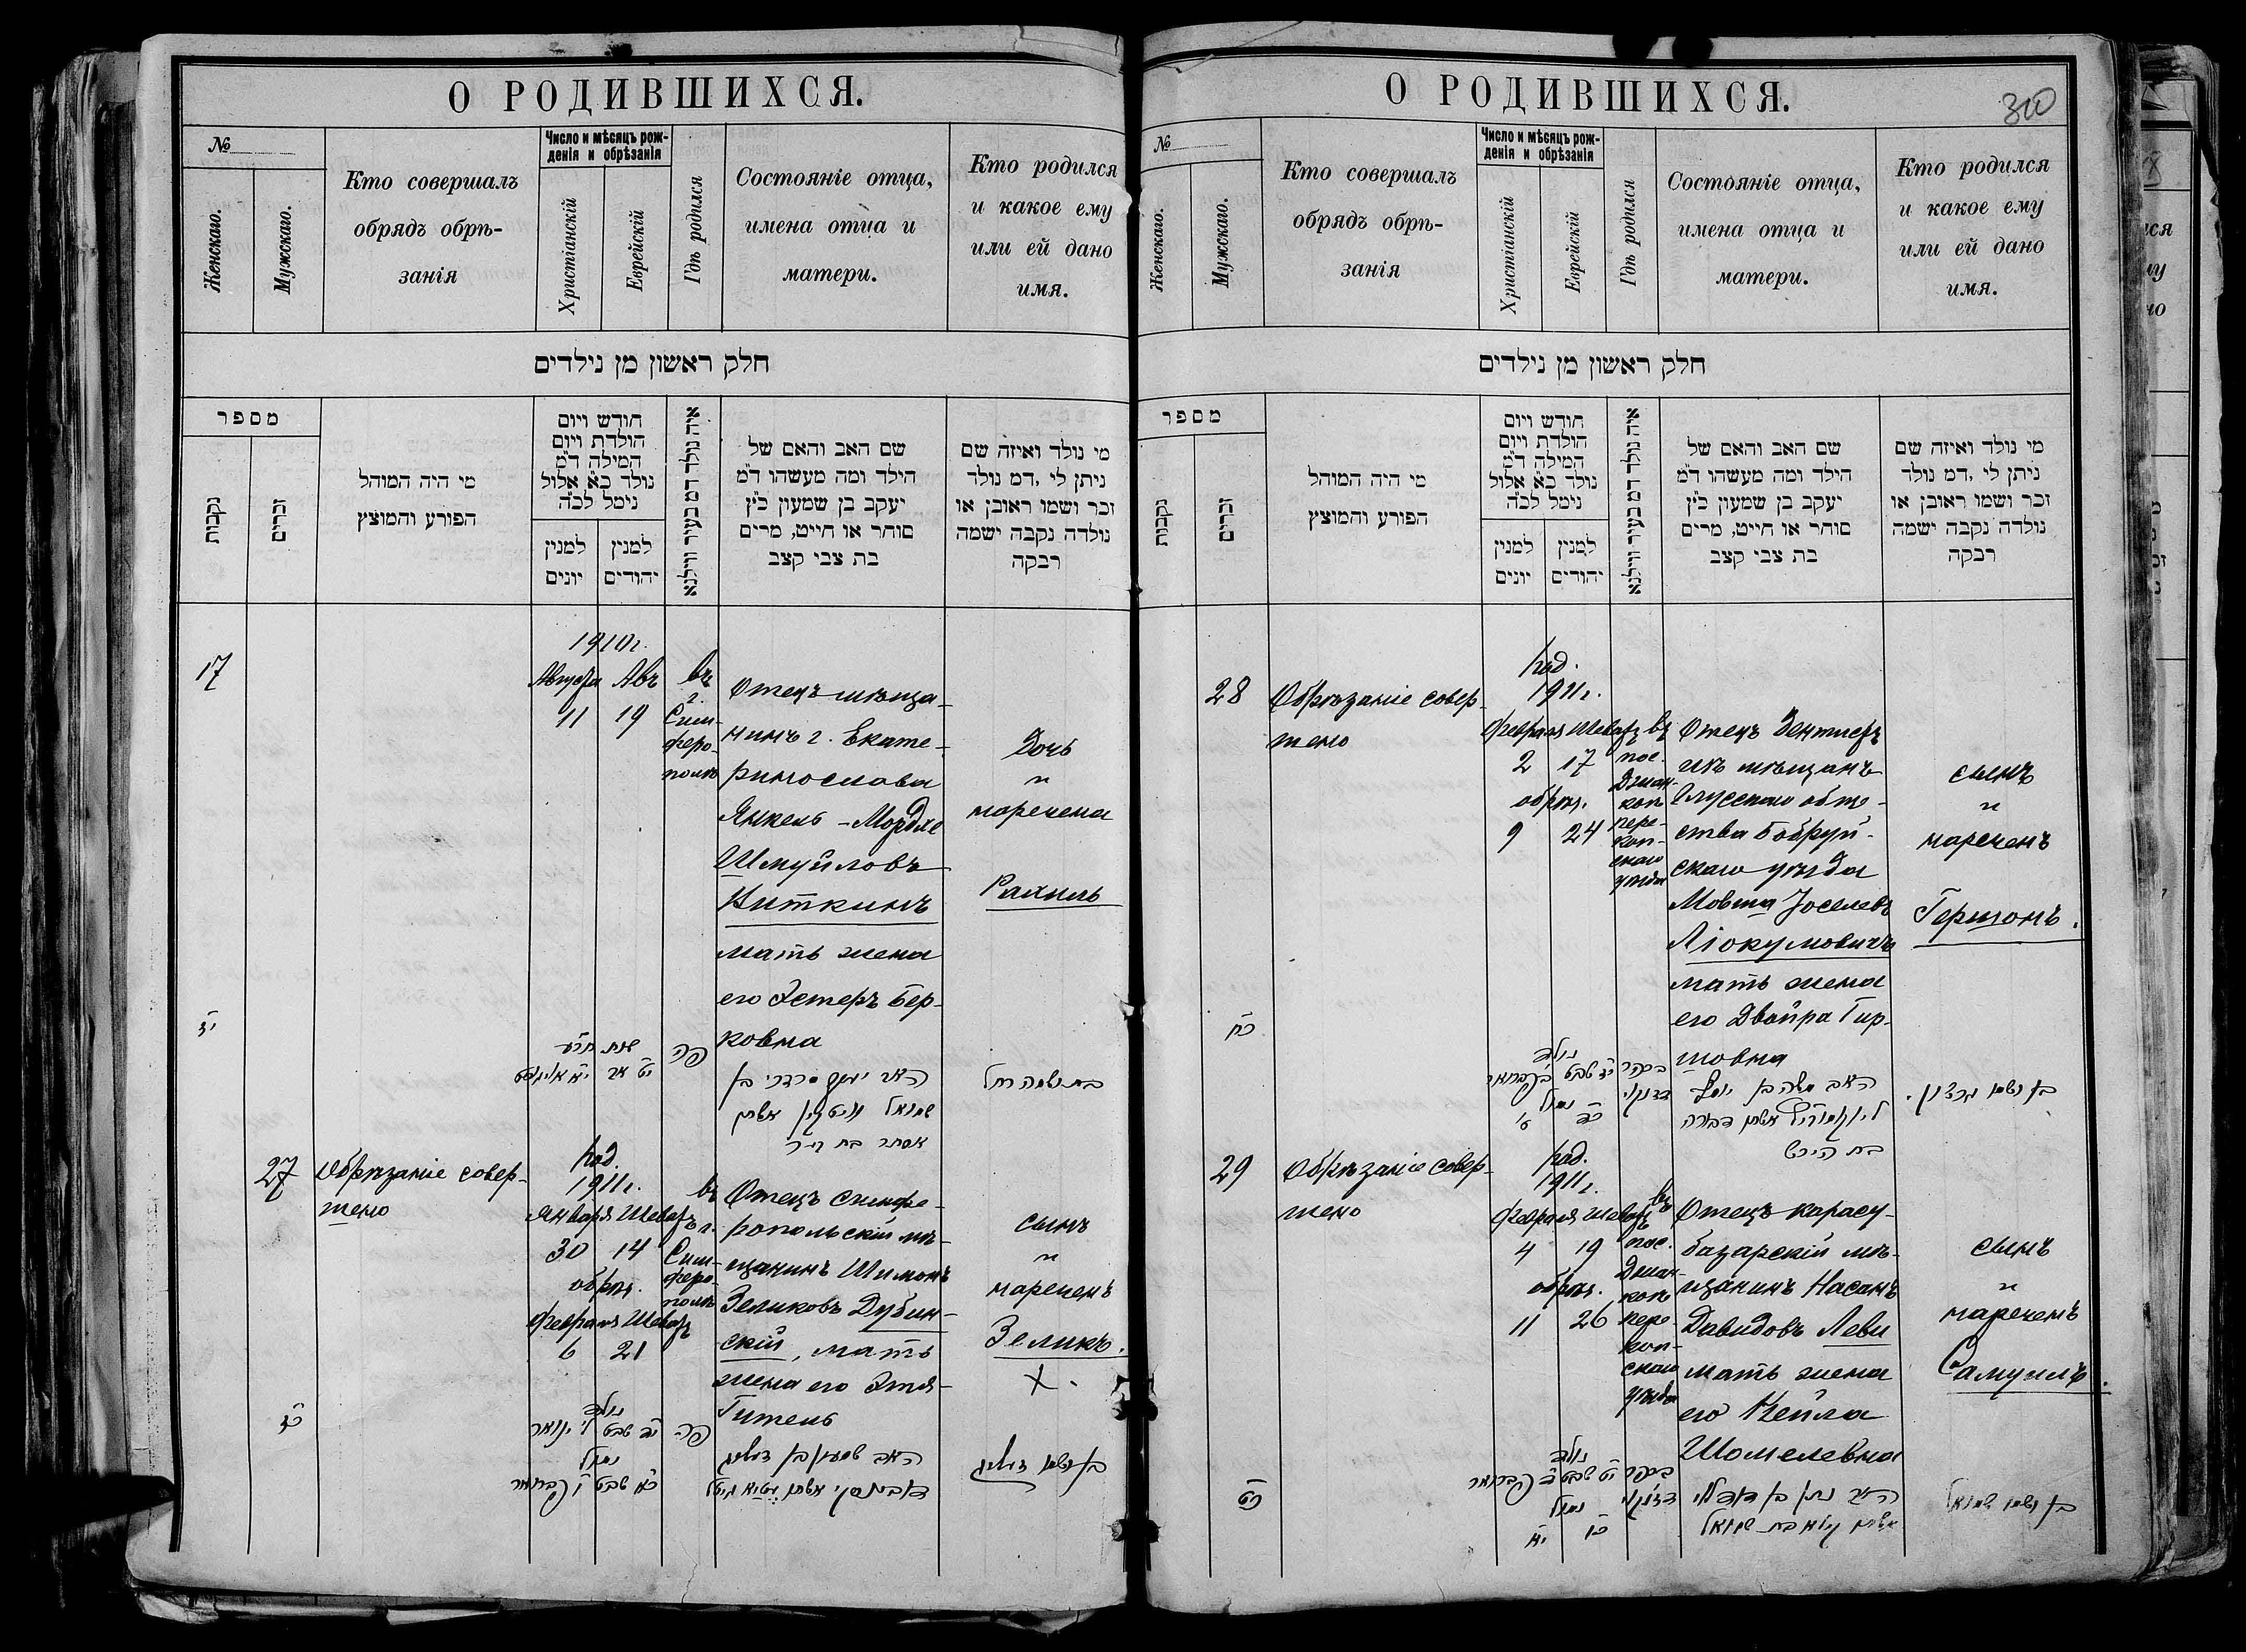 О РОДИВШИХСЯ.
№
Женскаго.
Мужскаго.
Кто совершалъ
обрядъ обрѣ-
занія
Число и мѣсяцъ рож-
денія и обрѣзанія
Христіанскій
Еврейскій
Гдѣ родился
Состояніе отца,
имена отца и
матери.
Кто родился
и какое ему
или ей дано
имя.
חלק ראשון מן נילדים
מספר
נקבות
זכרים
מי היה המוהל
הפורע והמוצץ
חודש ויום
הולדת ויום
המילה ד״מ
נולד כ״א אלול
נימל לכ״ה
למנין
יונים
למנין
יהודים
איה נולד דמ בעיר ווילנא
שם האב והאם של
הילד ומה מעשהו ד״מ
יעקב בן שמעון כ״ץ
סוחר או חייט, מרים
בת צבי קצב
מי נולד ואיזה שם
ניתן לו, דמ נולד
זכר ושמו ראובן או
נולדה נקבה ישמה
רבקה
17
1910 г.
Августа Авъ
11 19
въ
г.
Сим-
феро-
полѣ
Отецъ мѣща-
нинъ г. Екате-
ринослава
Янкель-Мордхе
Шмуйловъ
Виткинъ
мать жена
его Эстеръ Бер-
ковна
Дочь
и
наречена
Рахиль
יז
שנת תרע
יט אב י״א אויגוסט
פה
האב יעקב מרדכי בן
שמואל וויטקין אשתו
אסתר בת
בת ושמה רחל
27
Обрѣзаніе совер-
шено
род.
1911 г.
Января Шеватъ
30 14
обрѣз.
Февраля Шеватъ
6 21
въ
г.
Сим-
феро-
полѣ
Отецъ симфе-
ропольскій мѣ-
щанинъ Шимонъ
Зеликовъ Дубин-
скій, мать
жена его Этля-
Гитель
сынъ
и
нареченъ
Зеликъ.
כז
נולד
י״ד שבט ל׳ ינואר
נמול
כ״א שבט ו׳ פברואר
פה
האב שמעון בן זעליג
דובינסקי אשתו
בן ושמו זעליג
О РОДИВШИХСЯ.
310
№
Женскаго.
Мужскаго.
Кто совершалъ
обрядъ обрѣ-
занія
Число и мѣсяцъ рож-
денія и обрѣзанія
Христіанскій
Еврейскій
Гдѣ родился
Состояніе отца,
имена отца и
матери.
Кто родился
и какое ему
или ей дано
имя.
חלק ראשון מן נילדים
מספר
נקבות
זכרים
מי היה המוהל
הפורע והמוצץ
חודש ויום
הולדת ויום
המילה ד״מ
נולד כ״א אלול
נימל לכ״ה
למנין
יונים
למנין
יהודים
איה נולד דמ בעיר ווילנא
שם האב והאם של
הילד ומה מעשהו ד״מ
יעקב בן שמעון כ״ץ
סוחר או חייט, מרים
בת צבי קצב
מי נולד ואיזה שם
ניתן לו, דמ נולד
זכר ושמו ראובן או
נולדה נקבה ישמה
רבקה
28
Обрѣзаніе совер-
шено
род.
1911 г.
Февраля Шеватъ
2 17
обрѣз.
9 24
въ
пос.
Джан-
кой
пере-
коп-
скаго
уѣзда
Отецъ Дентистъ
изъ мѣщанъ
Глусскаго обще-
ства Бобруй-
скаго уѣзда
Мовша Іоселевъ
Ліокумовичъ
мать жена
его Двойра Гир-
шовна
сынъ
и
нареченъ
Гершонъ.
כח
נולד
נמול
האב משה בן יוסף
אשתו דבורה
בת הירש
בן ושמו גרשון.
29
Обрѣзаніе совер-
шено
род.
1911 г.
Февраля Шеватъ
4 19
обрѣз.
11 26
въ
пос.
Джан-
кой
пере-
коп-
скаго
уѣзда
Отецъ карасу-
базарскій мѣ-
щанинъ Насанъ
Давидовъ Леви
мать жена
его Кейла
Шомелевна
сынъ
и
нареченъ
Самуилъ.
כט
נולד
נמול
האב נתן בן דוד לוי
אשתו קילא בת שמואל
בן ושמו שמואל